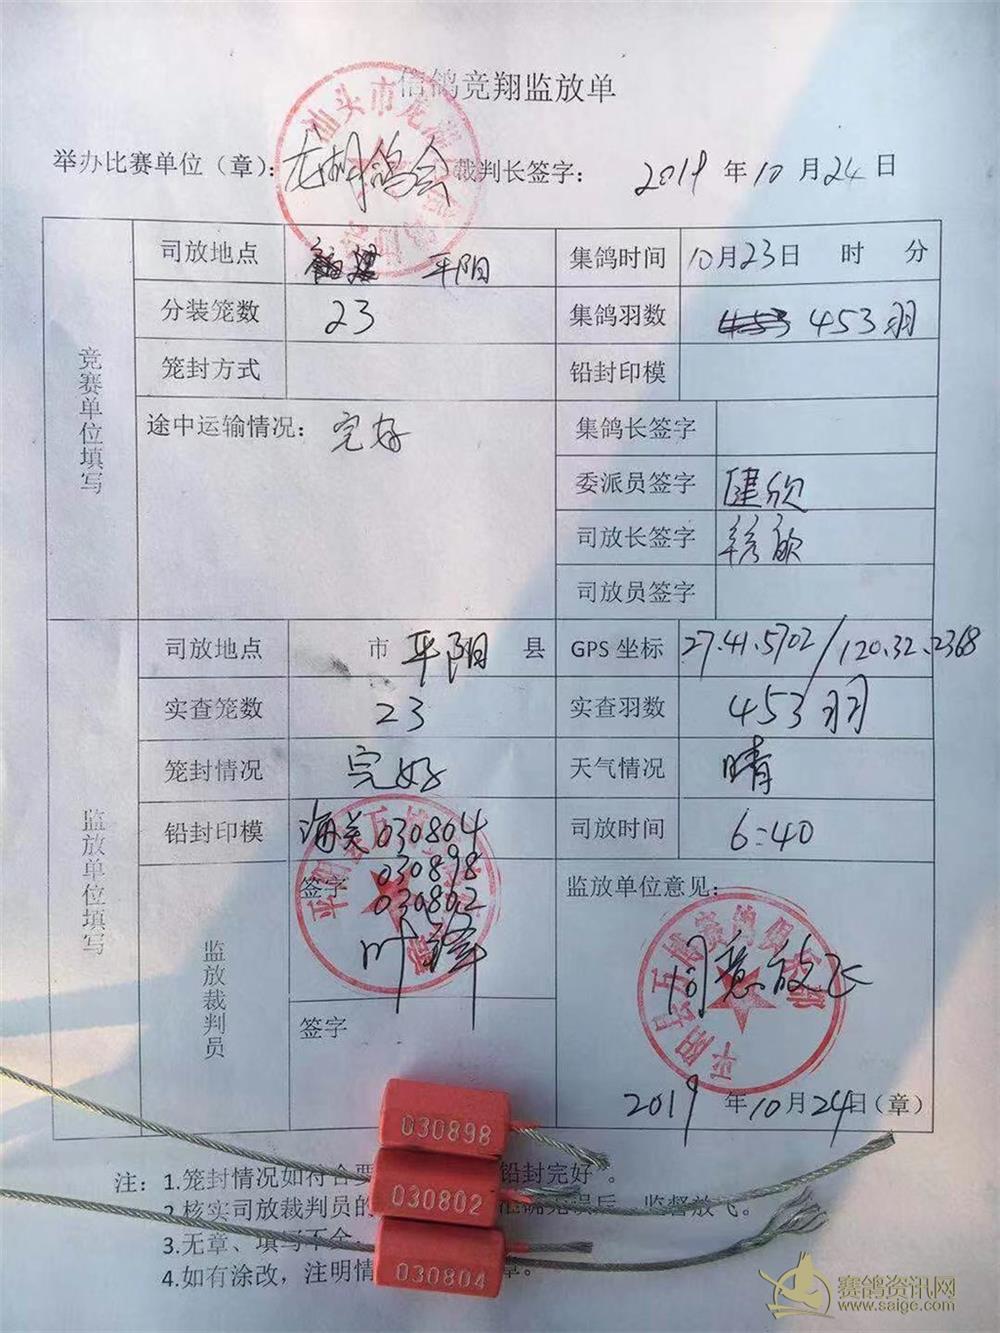 信鸽竞翔监放单
举办比赛单位（章）：龙湖鸽会 裁判长签字： 2019 年 10 月 24 日
竞赛单位填写
司放地点 平阳 集鸽时间 10月23日 时 分
分装笼数 23 集鸽羽数 453 453羽
笼封方式 铅封印模
途中运输情况：完好 集鸽长签字
委派员签字 健欣
司放长签字
司放员签字
监放单位填写
司放地点 市 平阳 县 GPS 坐标 27.41.5702/120.32.2368
实查笼数 23 实查羽数 453羽
笼封情况 完好 天气情况 晴
铅封印模 海关030804 司放时间 6:40
030898
030802
监放裁判员
签字 叶锋
签字
监放单位意见：
同意放飞
2019 年 10 月 24 日（章）
汕头市龙湖
平阳县
平阳县
注：1.笼封情况如符合要 铅封完好"。
2.核实司放裁判员的 准确无误后，监督放飞。
3.无章、填写不全
4.如有涂改，注明情 章。
030898
030802
030804
赛鸽资讯网
www.saige.com